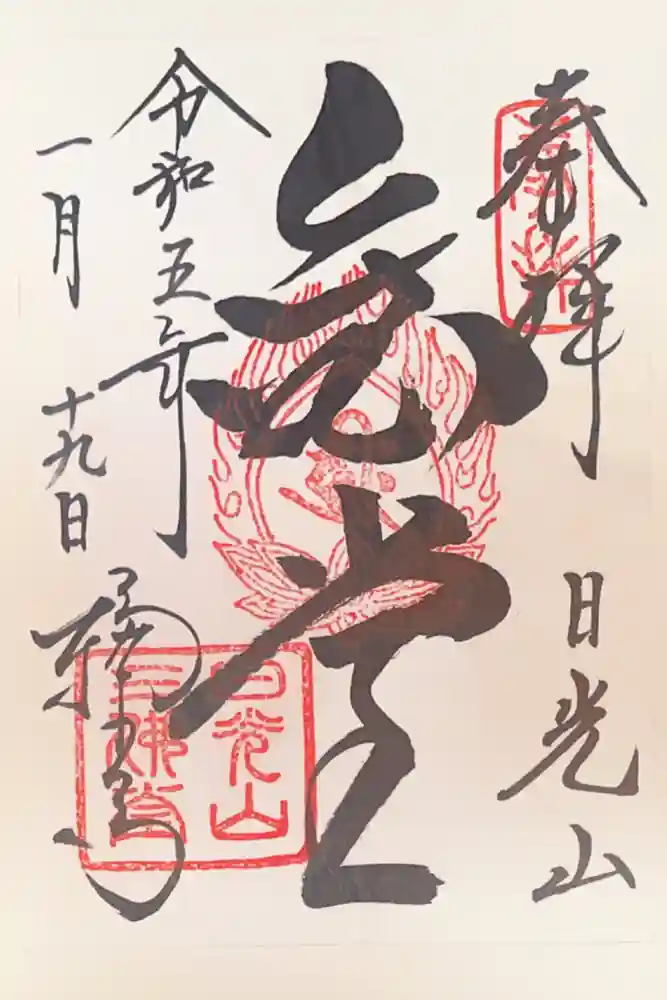 奉拝
日光山
金堂
令和五年
一月十九日
輪王寺
日光山
三佛堂